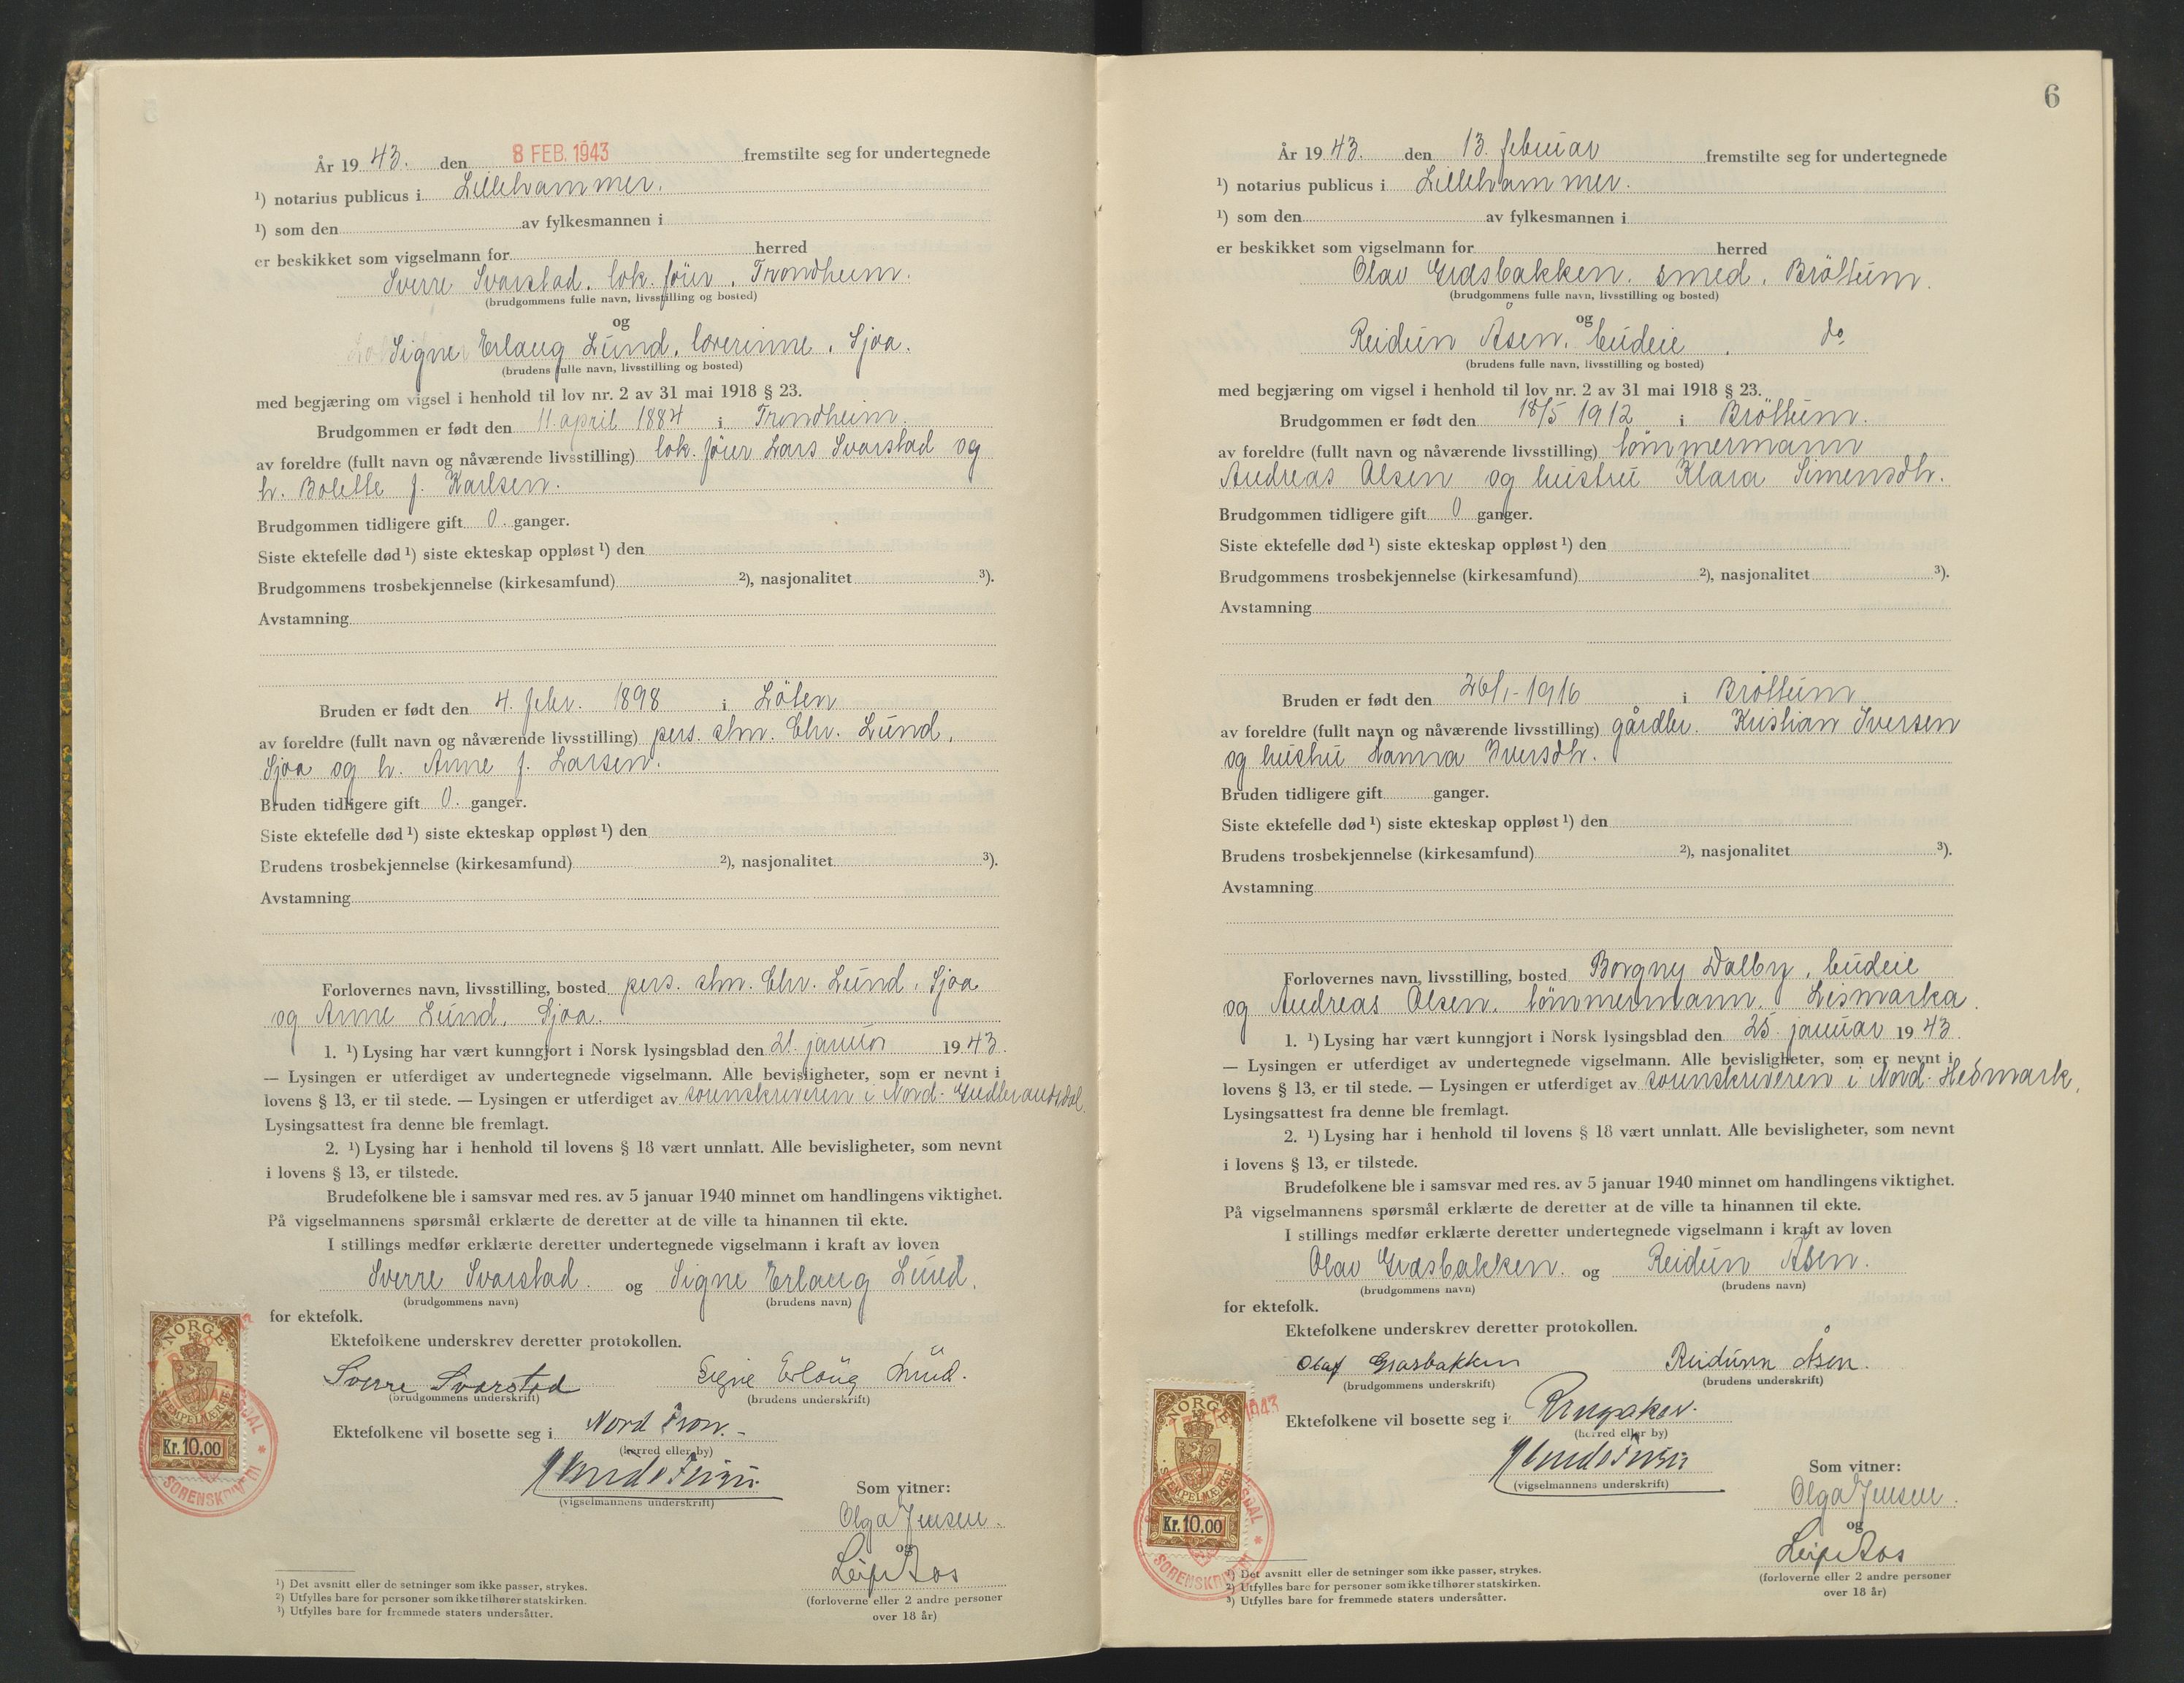 År 1943. den 8 FEB. 1943 fremstilte seg for undertegnede
¹) notarius publicus i Lillehammer.
¹) som den av fylkesmannen i
er beskikket som vigselmann for herred
Sverre Svarstad, lok. fører, Trondheim.
(brudgommens fulle navn, livsstilling og bosted)
og
Signe Erlaug Lund, lærerinne, Sjoa.
(brudens fulle navn, livsstilling og bosted)
med begjæring om vigsel i henhold til lov nr. 2 av 31 mai 1918 § 23.
Brudgommen er født den 11. april 1884 i Trondheim.
av foreldre (fullt navn og nåværende livsstilling) lok. fører Lars Svarstad og
h. Bolette f. Karlsen.
Brudgommen tidligere gift 0. ganger.
Siste ektefelle død ¹) siste ekteskap oppløst ¹) den
Brudgommens trosbekjennelse (kirkesamfund) ²), nasjonalitet ³).
Avstamning
Bruden er født den 4. febr. 1898 i Löten
av foreldre (fullt navn og nåværende livsstilling) pens. stm. Chr. Lund,
Sjoa og h. Anne f. Larsen.
Bruden tidligere gift 0. ganger.
Siste ektefelle død ¹) siste ekteskap oppløst ¹) den
Brudens trosbekjennelse (kirkesamfund) ²), nasjonalitet ³).
Avstamning
Forlovernes navn, livsstilling, bosted pens. stm. Chr. Lund, Sjoa
og Anne Lund, Sjoa.
1. ¹) Lysing har vært kunngjort i Norsk lysingsblad den 21. januar 1943.
— Lysingen er utferdiget av undertegnede vigselmann. Alle bevisligheter, som er nevnt i
lovens § 13, er til stede. — Lysingen er utferdiget av sorenskriveren i Nord-Gudbrandsdal
Lysingsattest fra denne ble fremlagt.
2. ¹) Lysing har i henhold til lovens § 18 vært unnlatt. Alle bevisligheter, som nevnt
i lovens § 13, er tilstede.
Brudefolkene ble i samsvar med res. av 5 januar 1940 minnet om handlingens viktighet.
På vigselmannens spørsmål erklærte de deretter at de ville ta hinannen til ekte.
I stillings medfør erklærte deretter undertegnede vigselmann i kraft av loven
Sverre Svarstad. og Signe Erlaug Lund.
(brudgommens navn) (brudens navn)
for ektefolk.
Ektefolkene underskrev deretter protokollen.
Sverre Svarstad Signe Erlaug Lund.
(brudgommens underskrift) (brudens underskrift)
Ektefolkene vil bosette seg i Nord Fron.-
(herred eller by)
(vigselmannens underskrift)
Som vitner:
Olga Jensen.
og
Leif Aos
(forloverne eller 2 andre personer
over 18 år)
NORGE
STEMPELMERKE
Kr. 10.00
SORENSKRIVEREN
¹) Det avsnitt eller de setninger som ikke passer, strykes.
²) Utfylles bare for personer som ikke tilhører statskirken.
³) Utfylles bare for fremmede staters undersåtter.
6
År 1943. den 13. februar fremstilte seg for undertegnede
¹) notarius publicus i Lillehammer.
¹) som den av fylkesmannen i
er beskikket som vigselmann for herred
Olav Gråsbakken, smed, Bröttum.
(brudgommens fulle navn, livsstilling og bosted)
og
Reidun Åsen, budeie, do
(brudens fulle navn, livsstilling og bosted)
med begjæring om vigsel i henhold til lov nr. 2 av 31 mai 1918 § 23.
Brudgommen er født den 18/5 1912 i Bröttum.
av foreldre (fullt navn og nåværende livsstilling) tömmermann
Andreas Olsen og hustru Klara Simensdtr.
Brudgommen tidligere gift 0 ganger.
Siste ektefelle død ¹) siste ekteskap oppløst ¹) den
Brudgommens trosbekjennelse (kirkesamfund) ²), nasjonalitet ³).
Avstamning
Bruden er født den 26/1-1916 i Bröttum
av foreldre (fullt navn og nåværende livsstilling) gårdbr. Kristian Iversen
og hustru Hanna Iversdtr.
Bruden tidligere gift ganger.
Siste ektefelle død ¹) siste ekteskap oppløst ¹) den
Brudens trosbekjennelse (kirkesamfund) ²), nasjonalitet ³).
Avstamning
Forlovernes navn, livsstilling, bosted Borgny Dalby, budeie
og Andreas Olsen, tömmermann, Lismarka.
1. ¹) Lysing har vært kunngjort i Norsk lysingsblad den 25. januar 1943
— Lysingen er utferdiget av undertegnede vigselmann. Alle bevisligheter, som er nevnt i
lovens § 13, er til stede. — Lysingen er utferdiget av sorenskriveren i Nord-Hedmark,
Lysingsattest fra denne ble fremlagt.
2. ¹) Lysing har i henhold til lovens § 18 vært unnlatt. Alle bevisligheter, som nevnt
i lovens § 13, er tilstede.
Brudefolkene ble i samsvar med res. av 5 januar 1940 minnet om handlingens viktighet.
På vigselmannens spørsmål erklærte de deretter at de ville ta hinannen til ekte.
I stillings medfør erklærte deretter undertegnede vigselmann i kraft av loven
Olav Gråsbakken. og Reidun Åsen.
(brudgommens navn) (brudens navn)
for ektefolk.
Ektefolkene underskrev deretter protokollen.
Olaf Grasbakken Reidunn Åsen.
(brudgommens underskrift) (brudens underskrift)
Ektefolkene vil bosette seg i Ringsaker.
(herred eller by)
(vigselmannens underskrift)
Som vitner:
Olga Jensen.
og
Leif Aos
(forloverne eller 2 andre personer
over 18 år)
NORGE
STEMPELMERKE
Kr. 10.00
SORENSKRIVEREN
¹) Det avsnitt eller de setninger som ikke passer, strykes.
²) Utfylles bare for personer som ikke tilhører statskirken.
³) Utfylles bare for fremmede staters undersåtter.